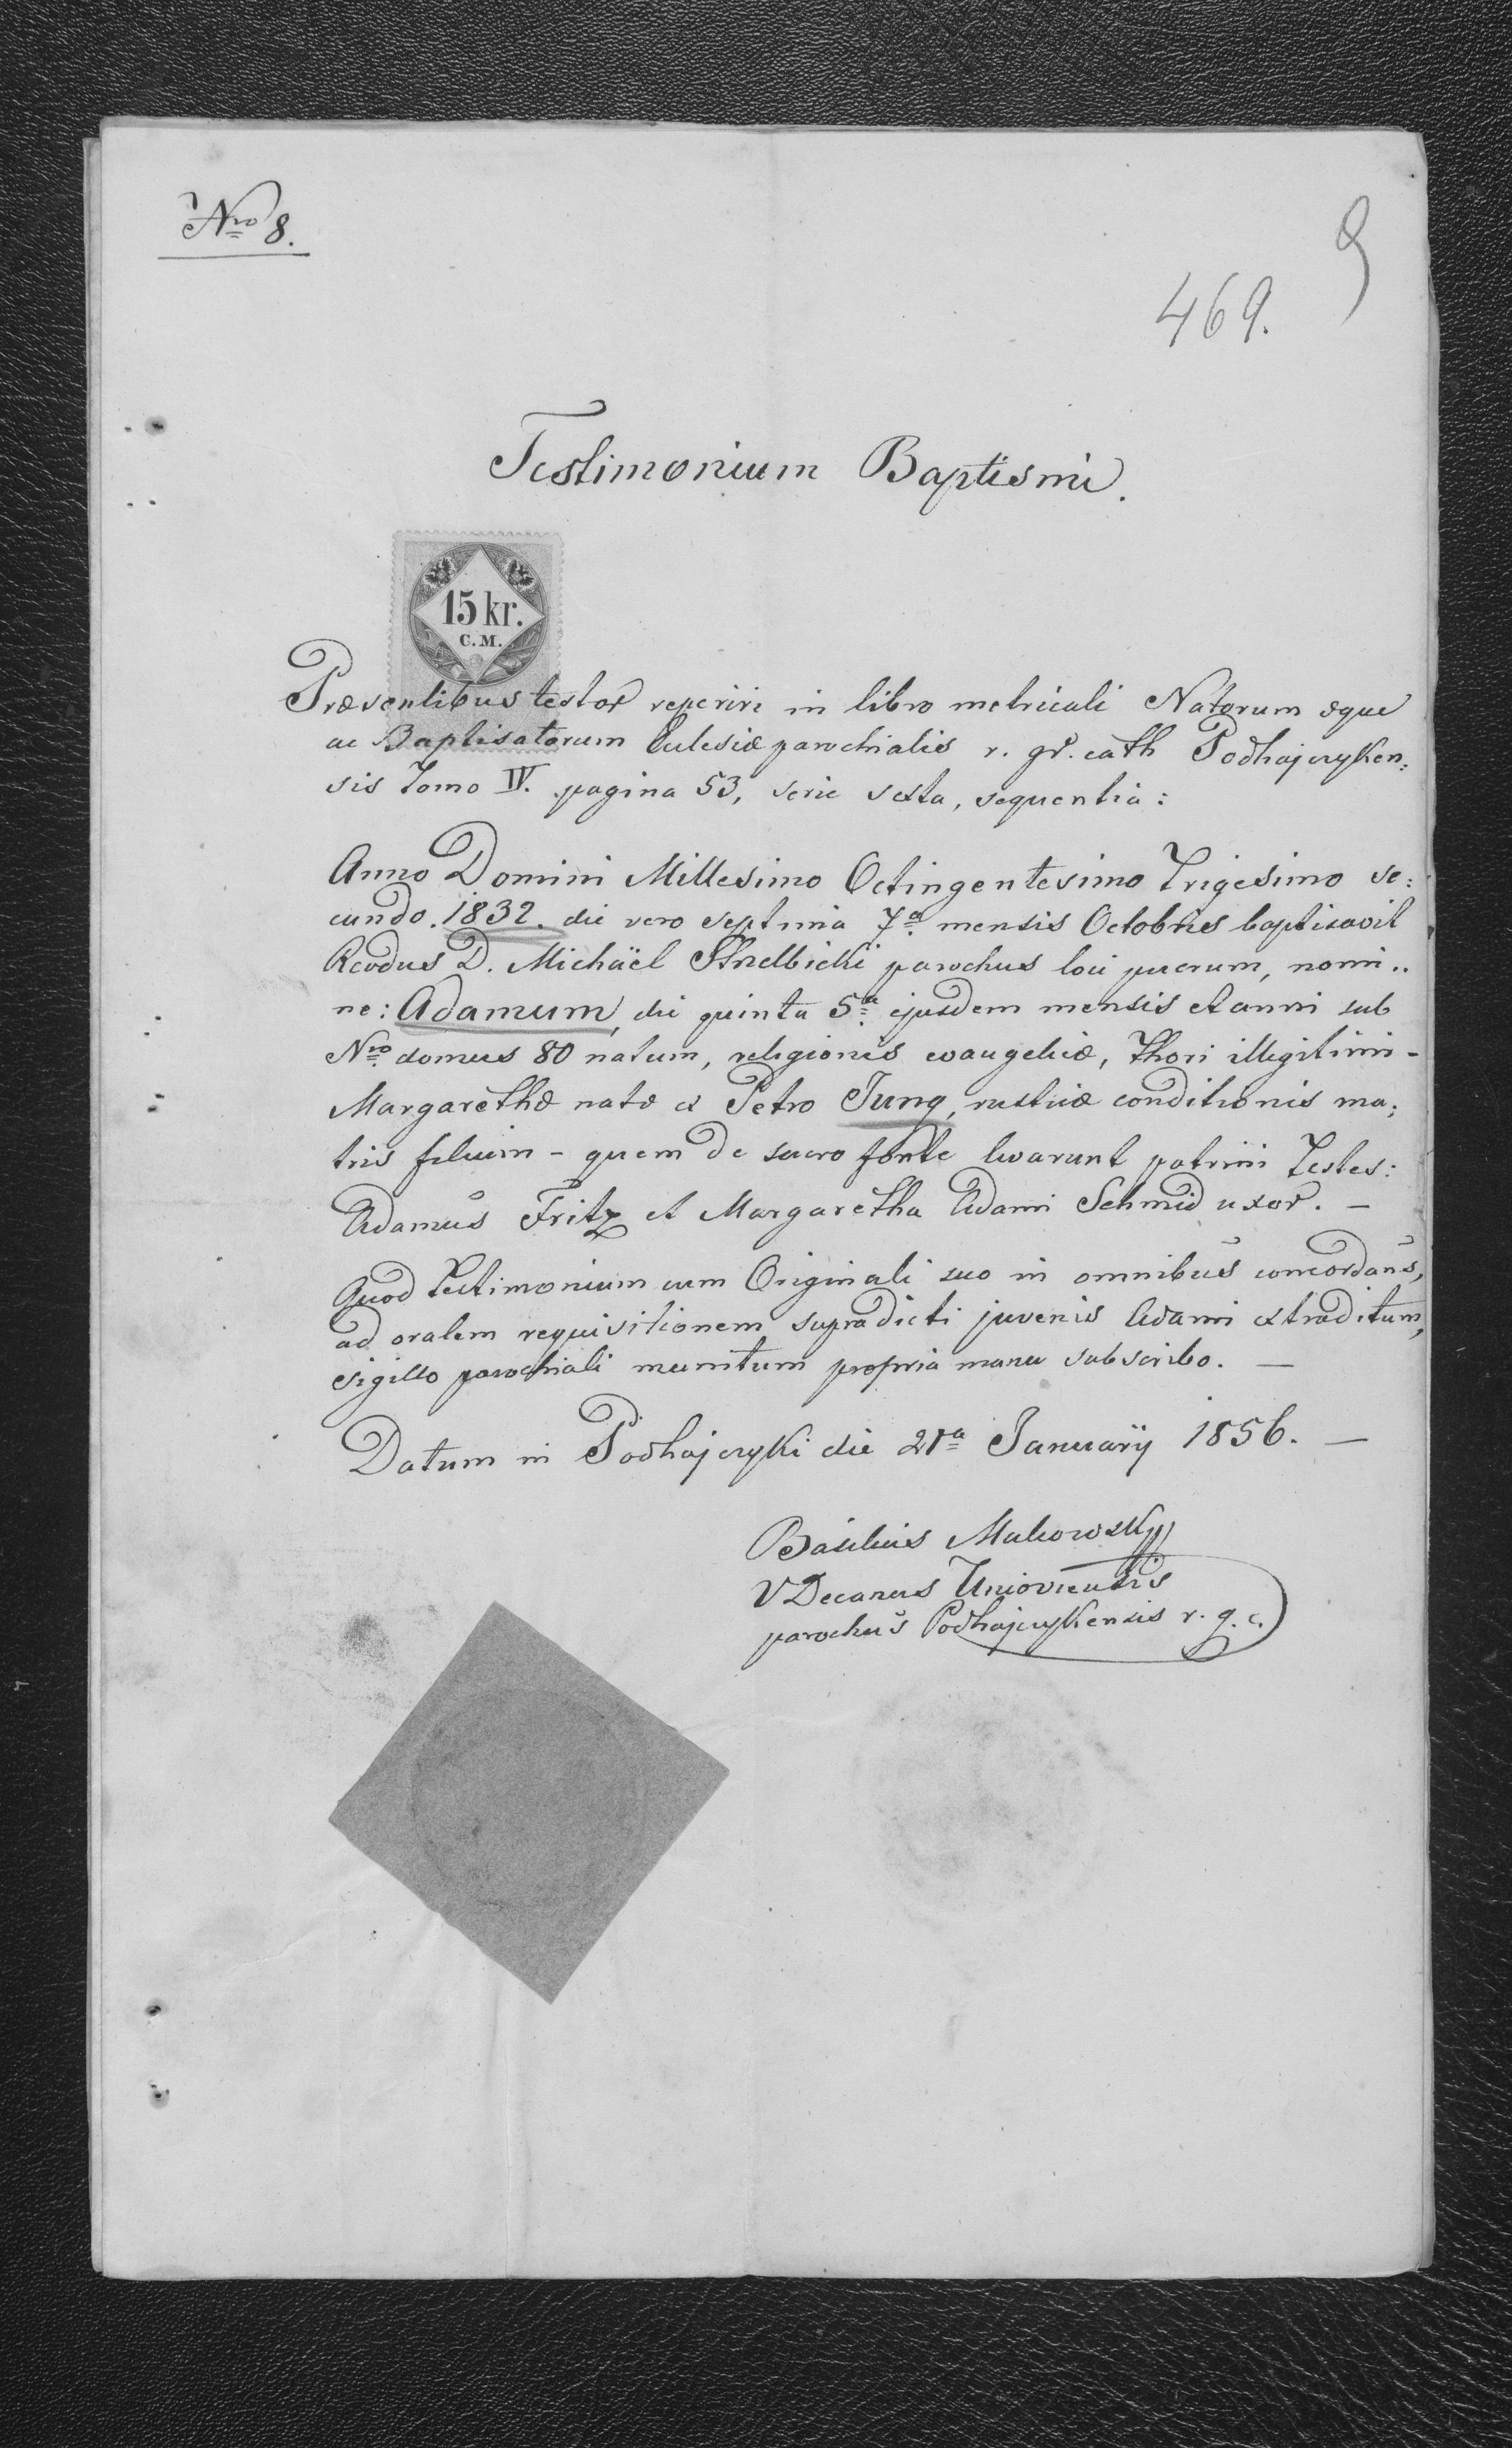 Nro 8.
9
469.
Testimonium Baptismi.
15 kr.
C.M.
Præsentibus testor reperiri in libro metricali Natorum æque
ac Baptisatorum Eclesiæ parochialis r. gr. cath Podhajczyken:
sis Tomo IV. pagina 53, serie sexta, sequentia:
Anno Domini Millesimo Octingentesimo Trigesimo se:
cundo. 1832. die vero septima 7a mensis Octobris baptisavit
Revdus D. Michäel Strzelbicki parochus loci puerum, nomi..
ne: Adamum, die quinta 5a ejusdem mensis et anni sub
Nro domus 80 natum, religionis evangelicæ, thori illegitimi -
Margarethæ natæ ex Petro Jung, rusticæ conditionis ma:
tris filium - quem de sacro fonte levarunt patrini Testes:
Adamus Fritz et Margaretha Adami Schmid uxor. -
Quod testimonium cum Originali suo in omnibus concordans,
ad oralem requisitionem supradicti juvenis Adami extraditum,
sigillo parochiali munitum propria manu subscribo. -
Datum in Podhajczyki die 21a Januarÿ 1856. -
Basilius
VDecanus Unioviensis
parochus Podhajczykensis r. g. c.